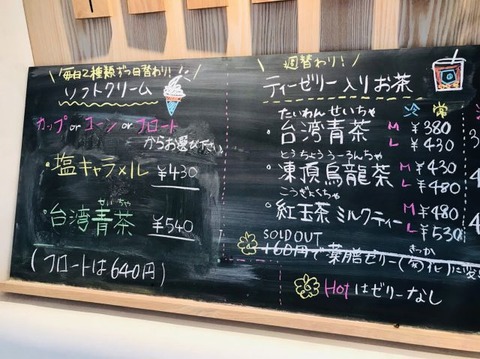 毎日2種類ずつ日替わり!
ソフトクリーム
カップ or コーン or フロート
からお選び下さい
・塩キャラメル ¥430
せいちゃ
・台湾青茶 ¥540
(フロートは640円)
週替わり!
ティーゼリー入りお茶
冷 常
たいわんせいちゃ
・台湾青茶 M ¥380
L ¥430
とうちょううーろんちゃ
・凍頂烏龍茶 M ¥430
L ¥480
こうぎょくちゃ
・紅玉茶ミルクティー M ¥480
L ¥530
SOLD OUT
160円で薬膳ゼリー(
Hotはゼリーなし